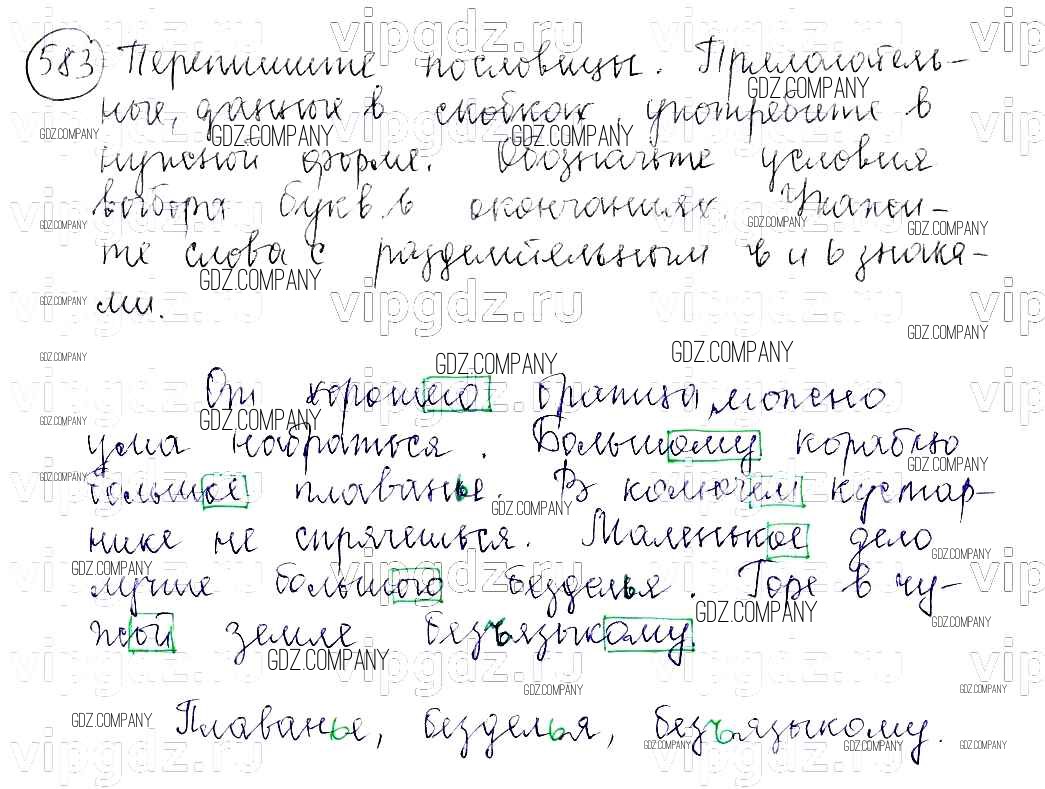 583 Перепишите пословицы. Прилагатель-
ные, данные в скобках, употребите в
нужной форме. Обозначьте условия
выбора букв в окончаниях. Укажи-
те слова с разделительным ъ и ь знака-
ми.
От хорошего братца можно
ума набраться. Большому кораблю
большое плаванье. В колючем кустар-
нике не спрячешься. Маленькое дело
лучше большого безделья. Горе в чу-
жой земле безъязыкому.
Плаванье, безделья, безъязыкому.